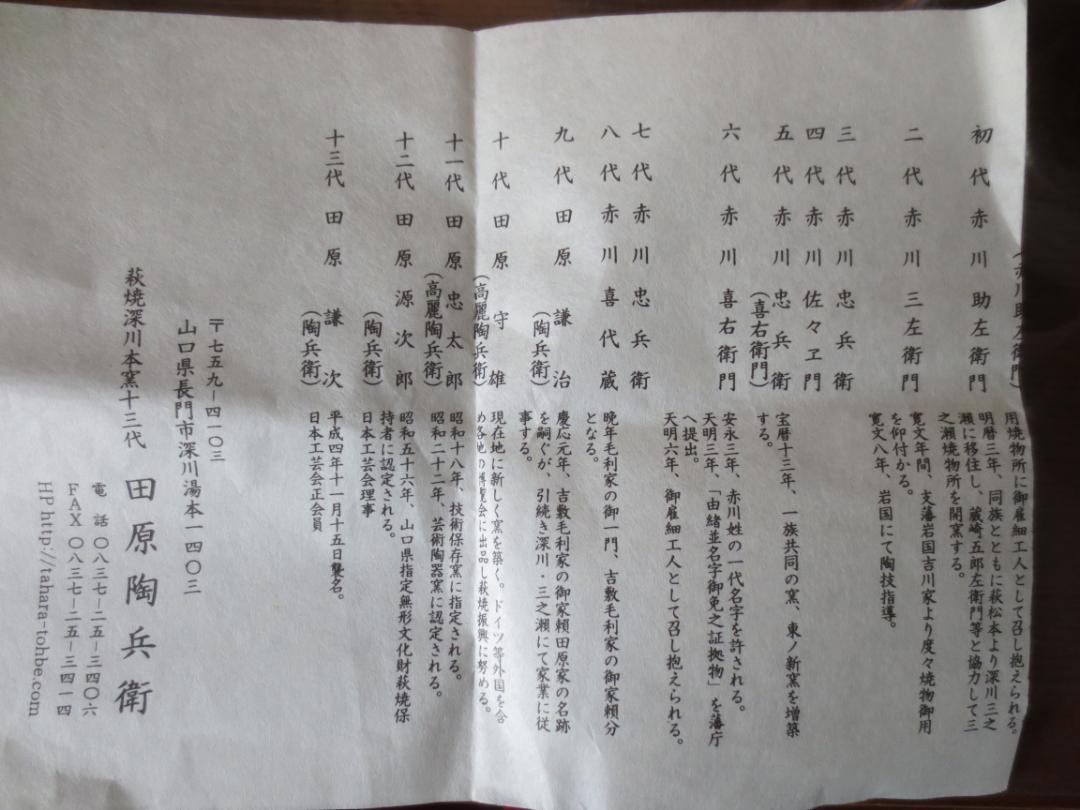 (赤川助左衛門)
用焼物所に御雇細工人として召し抱えられる。
初代 赤川助左衛門
明暦三年、同族とともに萩松本より深川三之
瀬に移住し、蔵崎五郎左衛門等と協力して三
之瀬焼物所を開窯する。
二代 赤川三左衛門
寛文年間、支藩岩国吉川家より度々焼物御用
を仰付かる。
寛文八年、岩国にて陶技指導。
三代 赤川忠兵衛
四代 赤川佐々ヱ門
五代 赤川忠兵衛
(喜右衛門)
宝暦十三年、一族共同の窯、東ノ新窯を増築
する。
六代 赤川喜右衛門
安永三年、赤川姓の一代名字を許される。
天明三年、「由緒並名字御免之証拠物」を藩庁
へ提出。
天明六年、御雇細工人として召し抱えられる。
七代 赤川忠兵衛
八代 赤川喜代蔵
晩年毛利家の御一門、吉敷毛利家の御家頼分
となる。
九代 田原謙治
(陶兵衛)
慶応元年、吉敷毛利家の御家頼田原家の名跡
を嗣ぐが、引続き深川・三之瀬にて家業に従
事する。
十代 田原守雄
(高麗陶兵衛)
現在地に新しく窯を築く。ドイツ等外国を含
め各地の博覧会に出品し萩焼振興に努める。
十一代 田原忠太郎
(高麗陶兵衛)
昭和十八年、技術保存窯に指定される。
昭和二十二年、芸術陶器窯に認定される。
十二代 田原源次郎
(陶兵衛)
昭和五十六年、山口県指定無形文化財萩焼保
持者に認定される。
日本工芸会理事
十三代 田原謙次
(陶兵衛)
平成四年十一月十五日襲名。
日本工芸会正会員
〒七五九-四一〇三
山口県長門市深川湯本一四〇三
萩焼深川本窯十三代 田原陶兵衛
電話 〇八三七-二五-三四〇六
FAX 〇八三七-二五-三四一四
HP http://tahara-tohbe.com